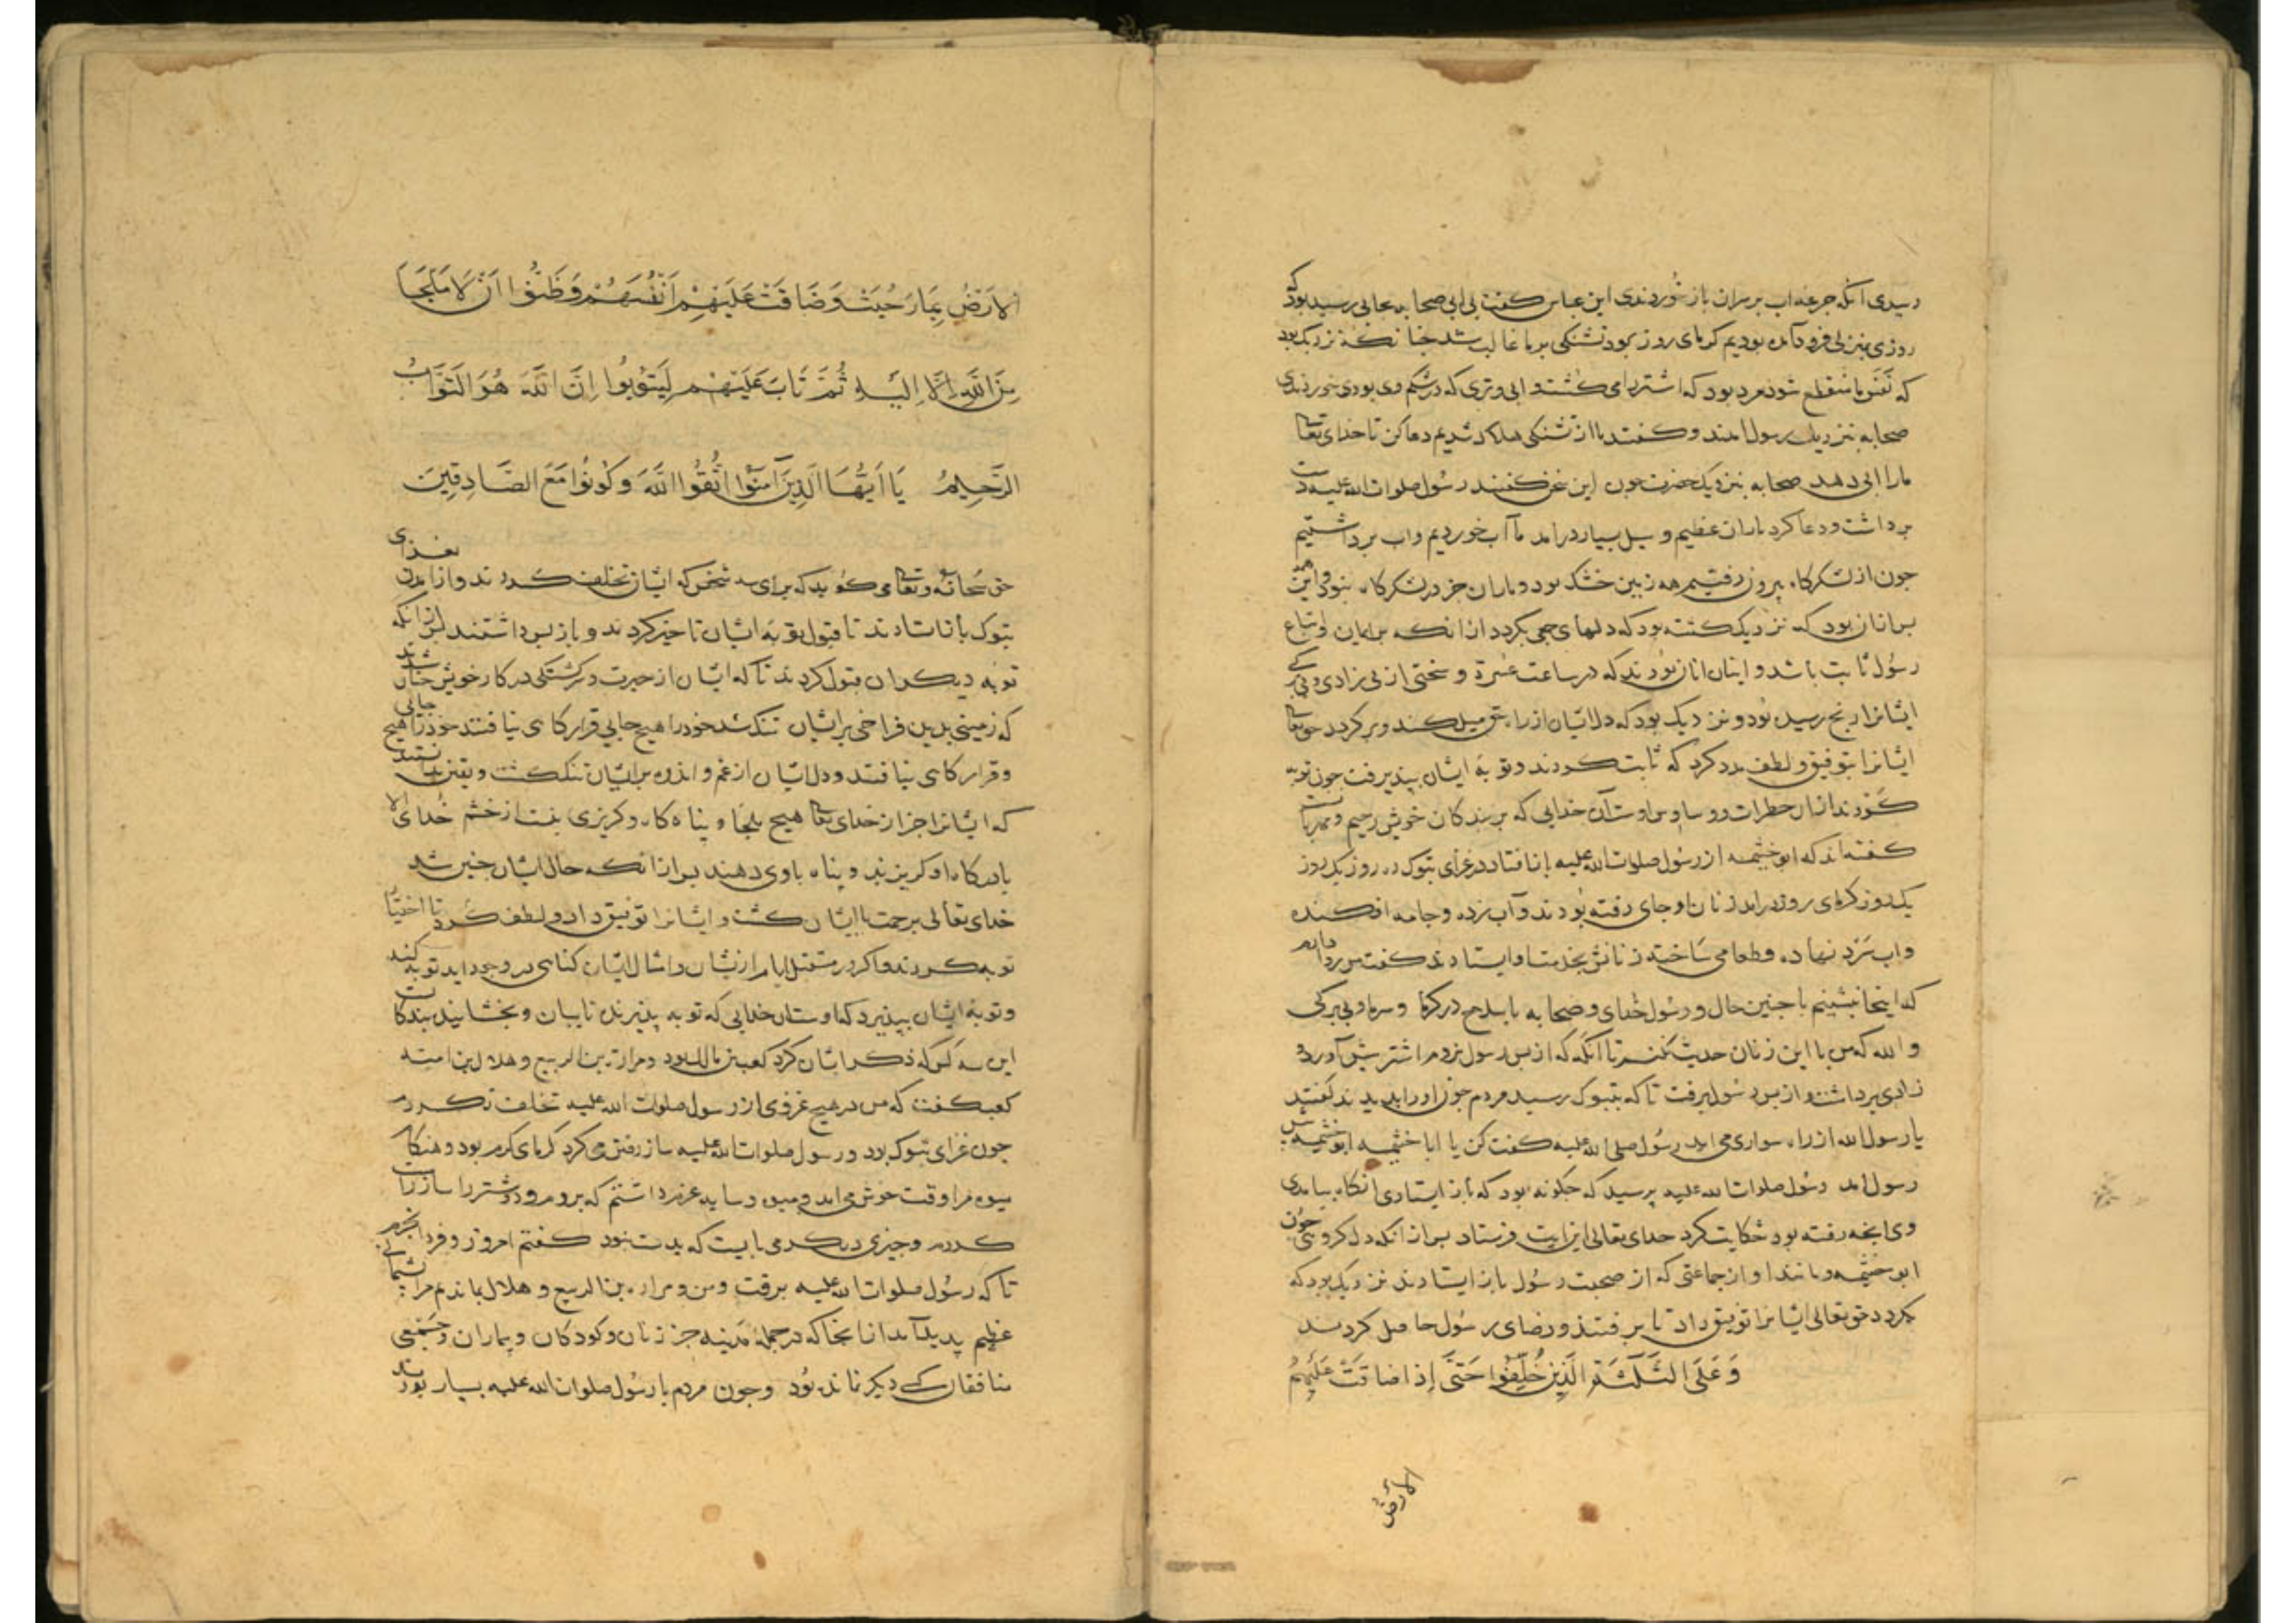 رسیدی آنکه جرعه اب بر سران باز خوردندی ابن عباس کفت بی ابی صحابه بجایی رسید بود که
روزی بمنزلی فرو آمده بودیم کرمای روز بود تشنکی بر ما غالب شد جنانکه نزدیک بود
که نفس ما منقطع شود مرد بود که اشتر را می کشت و ابی و تری که در شکم وی بودی می خوردندی
صحابه بنزدیک رسول امدند و کفتند ما از تشنکی هلاک شدیم دعا کن تا خدای تعالی
مارا ابی دهد صحابه بنزدیک حضرت جون این سخن کفتند رسول صلوات الله علیه دست
برداشت و دعا کرد باران عظیم و سیل بسیار درامد ما آب خوردیم و اب برداشتیم
جون از لشکرکاه بیرون رفتیم همه زمین خشک بود و باران جز در لشکرکاه نبود و این همه
بس ازان بود که نزدیک کشته بود که دلهای جمعی بکردد ازانکه بر ایمان و اتباع
رسول ثابت باشد و اینان انان بودند که در ساعت عسرة و سختی از بی زادی و بی برکی
ایشانرا رنج رسیده بود و نزدیک بود که دل ایشان از راه حق میل کند و برکردد حق تعالی
ایشانرا بتوفیق و لطف مدد کرد که ثابت کردند و توبه ایشان بپذیرفت جون توبه
کردند ازان خطرات و وساوس اوست آن خدایی که بر بندکان خویش رحیم و مهربانست
کفته اند که ابو خثیمه از رسول صلوات الله علیه باز افتاد در غزای تبوک ده روز یک روز
یک روز کرمای روز درامد زنان او جای رفته بودند و آب زده و جامه افکنده
واب سرد نهاده و طعامی ساخته زنانش بخدمت او ایستادند کفت من روا ندارم
که اینجا بنشینم با جنین حال و رسول خدای و صحابه با سلاح در کرما و سرما و بی برکی
و الله که من با این زنان حدیث نکنم تا آنکه که از بس رسول بروم اشتر بیش آورد و
زادی برداشت و از بس رسول برفت تا که بتبوک رسید مردم جون او را بدیدند کفتند
یا رسول الله از راه سواری می اید رسول صلی الله علیه کفت کن یا ابا خثیمه ابو خثیمه بیش
رسول امد رسول صلوات الله علیه پرسید که جکونه بود که باز ایستادی انکاه بیامدی
وی انجه رفته بود حکایت کرد خدای تعالی این ایت فرستاد بس ازانکه دل کروهی جون
ابو خثیمه و مانند او از جماعتی که از صحبت رسول باز ایستادند نزدیک بود که
بکردد حق تعالی ایشانرا توفیق داد تا برفتند و رضای رسول حاصل کردند
وَعَلَی الثَّلٰثَةِ الَّذِینَ خُلِّفُوا حَتَّی إِذَا ضَاقَتْ عَلَیْهِمُ
الأرض
الارْضُ بِمَا رَحُبَتْ وَضَاقَتْ عَلَیْهِمْ اَنْفُسُهُمْ وَظَنُّوا اَنْ لَا مَلْجَاَ
مِنَ اللّٰهِ اِلَّا اِلَیْهِ ثُمَّ تَابَ عَلَیْهِمْ لِیَتُوبُوا اِنَّ اللّٰهَ هُوَ التَّوَّابُ
الرَّحِیمُ یَا اَیُّهَا الَّذِینَ آمَنُوا اتَّقُوا اللّٰهَ وَکُونُوا مَعَ الصَّادِقِینَ
حق سبحانه و تعالی می کوید که برای سه شخص که ایشان تخلف کردند و از امدن بغزای
تبوک باز استادند تا قبول توبه ایشان تاخیر کردند و باز بس داشتند بس ازانکه
توبه دیکران قبول کردند تا که ایشان از حیرت و سرکشتکی در کار خویش جنان شدند
که زمین بدین فراخی بر ایشان تنک شد خود را هیج جایی قرارکاهی نیافتند خود را هیج جایی
و قرارکاهی نیافتند و دل ایشان از غم و اندوه بر ایشان تنک کشت و یقین بدانستند
که ایشانرا جز از خدای تعالی هیج ملجا و پناه کاه و کریزی نیست از خشم خدای الا
بادرکاه او کریزند و پناه باوی دهند بس ازانکه حال ایشان جنین شد
خدای تعالی برحمت با ایشان کشت و ایشانرا توفیق داد و لطف کرد تا اختیار
توبه کردند و اکر در مستقبل ایام ازیشان و امثال ایشان کناهی در وجود اید توبه کنند
و توبه ایشان بپذیرد که اوست ان خدایی که توبه پذیرنده تایبان و بخشاینده بندکانست
این سه کس که ذکر ایشان کرد کعب بن مالک بود و مرارة بن الربیع و هلال بن امیه
کعب کفت که من در هیج غزوی از رسول صلوات الله علیه تخلف نکردم
جون غزای تبوک بود و رسول صلوات الله علیه ساز رفتن می کرد کرمای کرم بود و هنکام
میوه مرا وقت خوش می امد و میوه و سایه عزیز داشتم که بروم و دو شتر را ساز راست
کردم و جیزی دیکر می بایست که بدست نبود کفتم امروز و فردا بخرم
تا که رسول صلوات الله علیه برفت و من و مراره بن الربیع و هلال بماندیم مرا پشیمانی
عظیم پدید آمد از انجا که در جمله مدینه جز زنان و کودکان و بیماران و جمعی
منافقان کسی دیکر نمانده بود و جون مردم با رسول صلوات الله علیه بسیار بودند